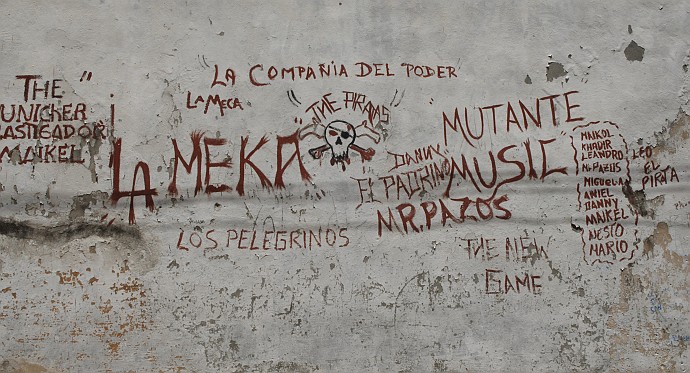 THE "
UNICKER
LASTIGADOR
MAIKEL
LA COMPAÑIA DEL PODER
LA MECA
LA MEKA
"THE PIRATAS"
LOS PELEGRINOS
MUTANTE
MUSIC
DANNY
EL PADRINO
MR.PAZOS
THE NEW
GAME
MAIKOL
KHADIR
LEANDRO
Mr PAZOS
MIGUEL
ANIEL
DANNY
MAIKEL
NESTO
MARIO
LEO
EL
PIRATA